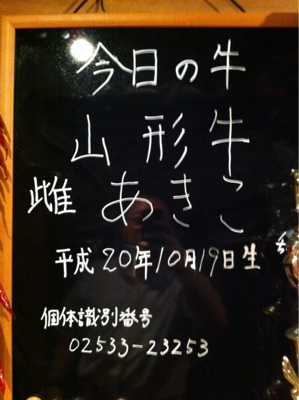 今日の牛
山形牛
雌 あきこ
平成20年10月19日生
個体識別番号
02533-23253